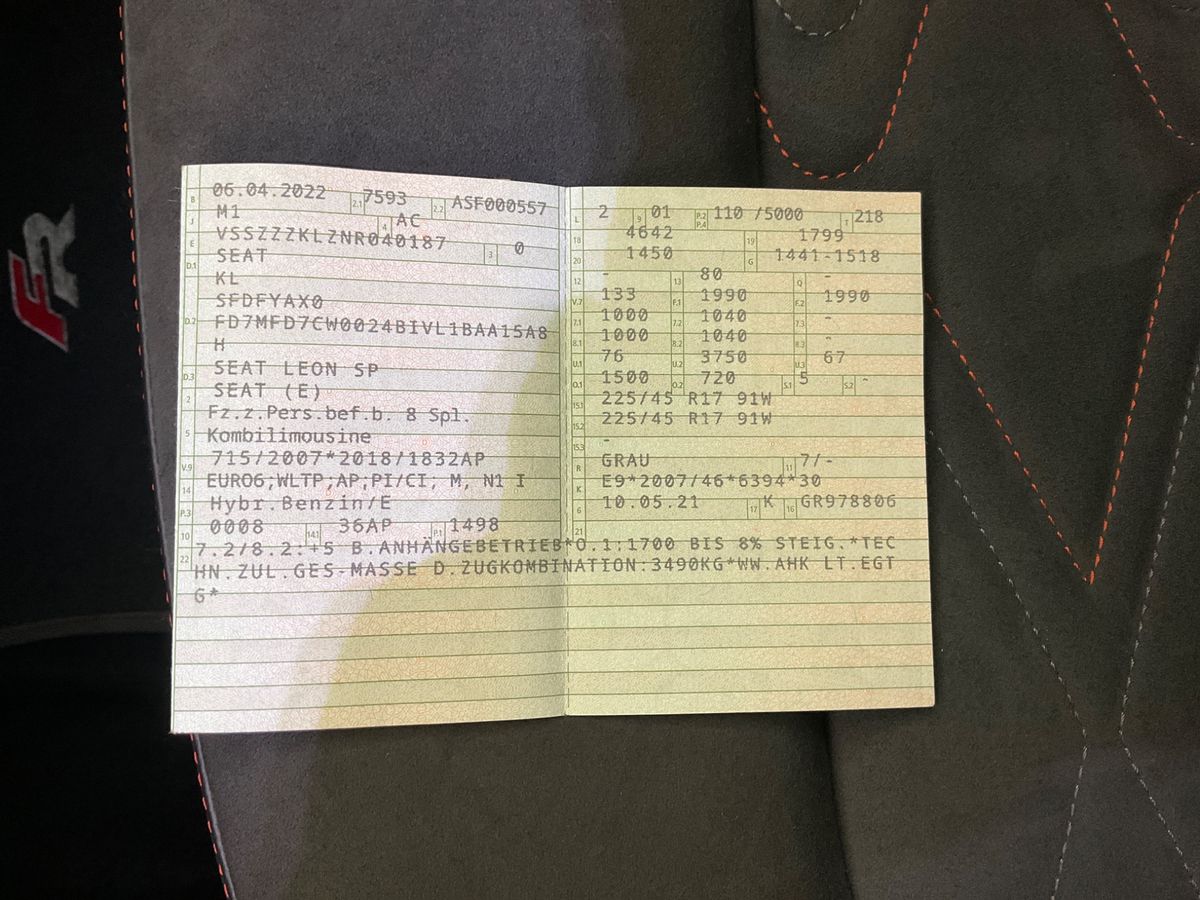 FR
B 06.04.2022 2.1 7593 2.2 ASF000557
J M1 4 AC
E VSSZZZKLZNR040187 3 0
D.1 SEAT
KL
SFDFYAX0
D.2 FD7MFD7CW0024BIVL1BAA15A8
H
D.3 SEAT LEON SP
2 SEAT (E)
Fz.z.Pers.bef.b. 8 Spl.
5 Kombilimousine
V.9 715/2007*2018/1832AP
14 EURO6;WLTP;AP;PI/CI; M, N1 I
P.3 Hybr.Benzin/E
10 0008 14.1 36AP P.1 1498
L 2 9 01 P.2 P.4 110 /5000 T 218
18 4642 19 1799
20 1450 G 1441-1518
12 - 13 80 Q -
V.7 133 F.1 1990 F.2 1990
7.1 1000 7.2 1040 7.3 -
8.1 1000 8.2 1040 8.3 -
U.1 76 U.2 3750 U.3 67
O.1 1500 O.2 720 S.1 5 S.2 -
15.1 225/45 R17 91W
15.2 225/45 R17 91W
15.3 -
R GRAU 11 7/-
K E9*2007/46*6394*30
6 10.05.21 17 K 16 GR978806
21
22 7.2/8.2:+5 B.ANHÄNGEBETRIEB*O.1:1700 BIS 8% STEIG.*TEC
HN.ZUL.GES-MASSE D.ZUGKOMBINATION:3490KG*WW.AHK LT.EGT
G*